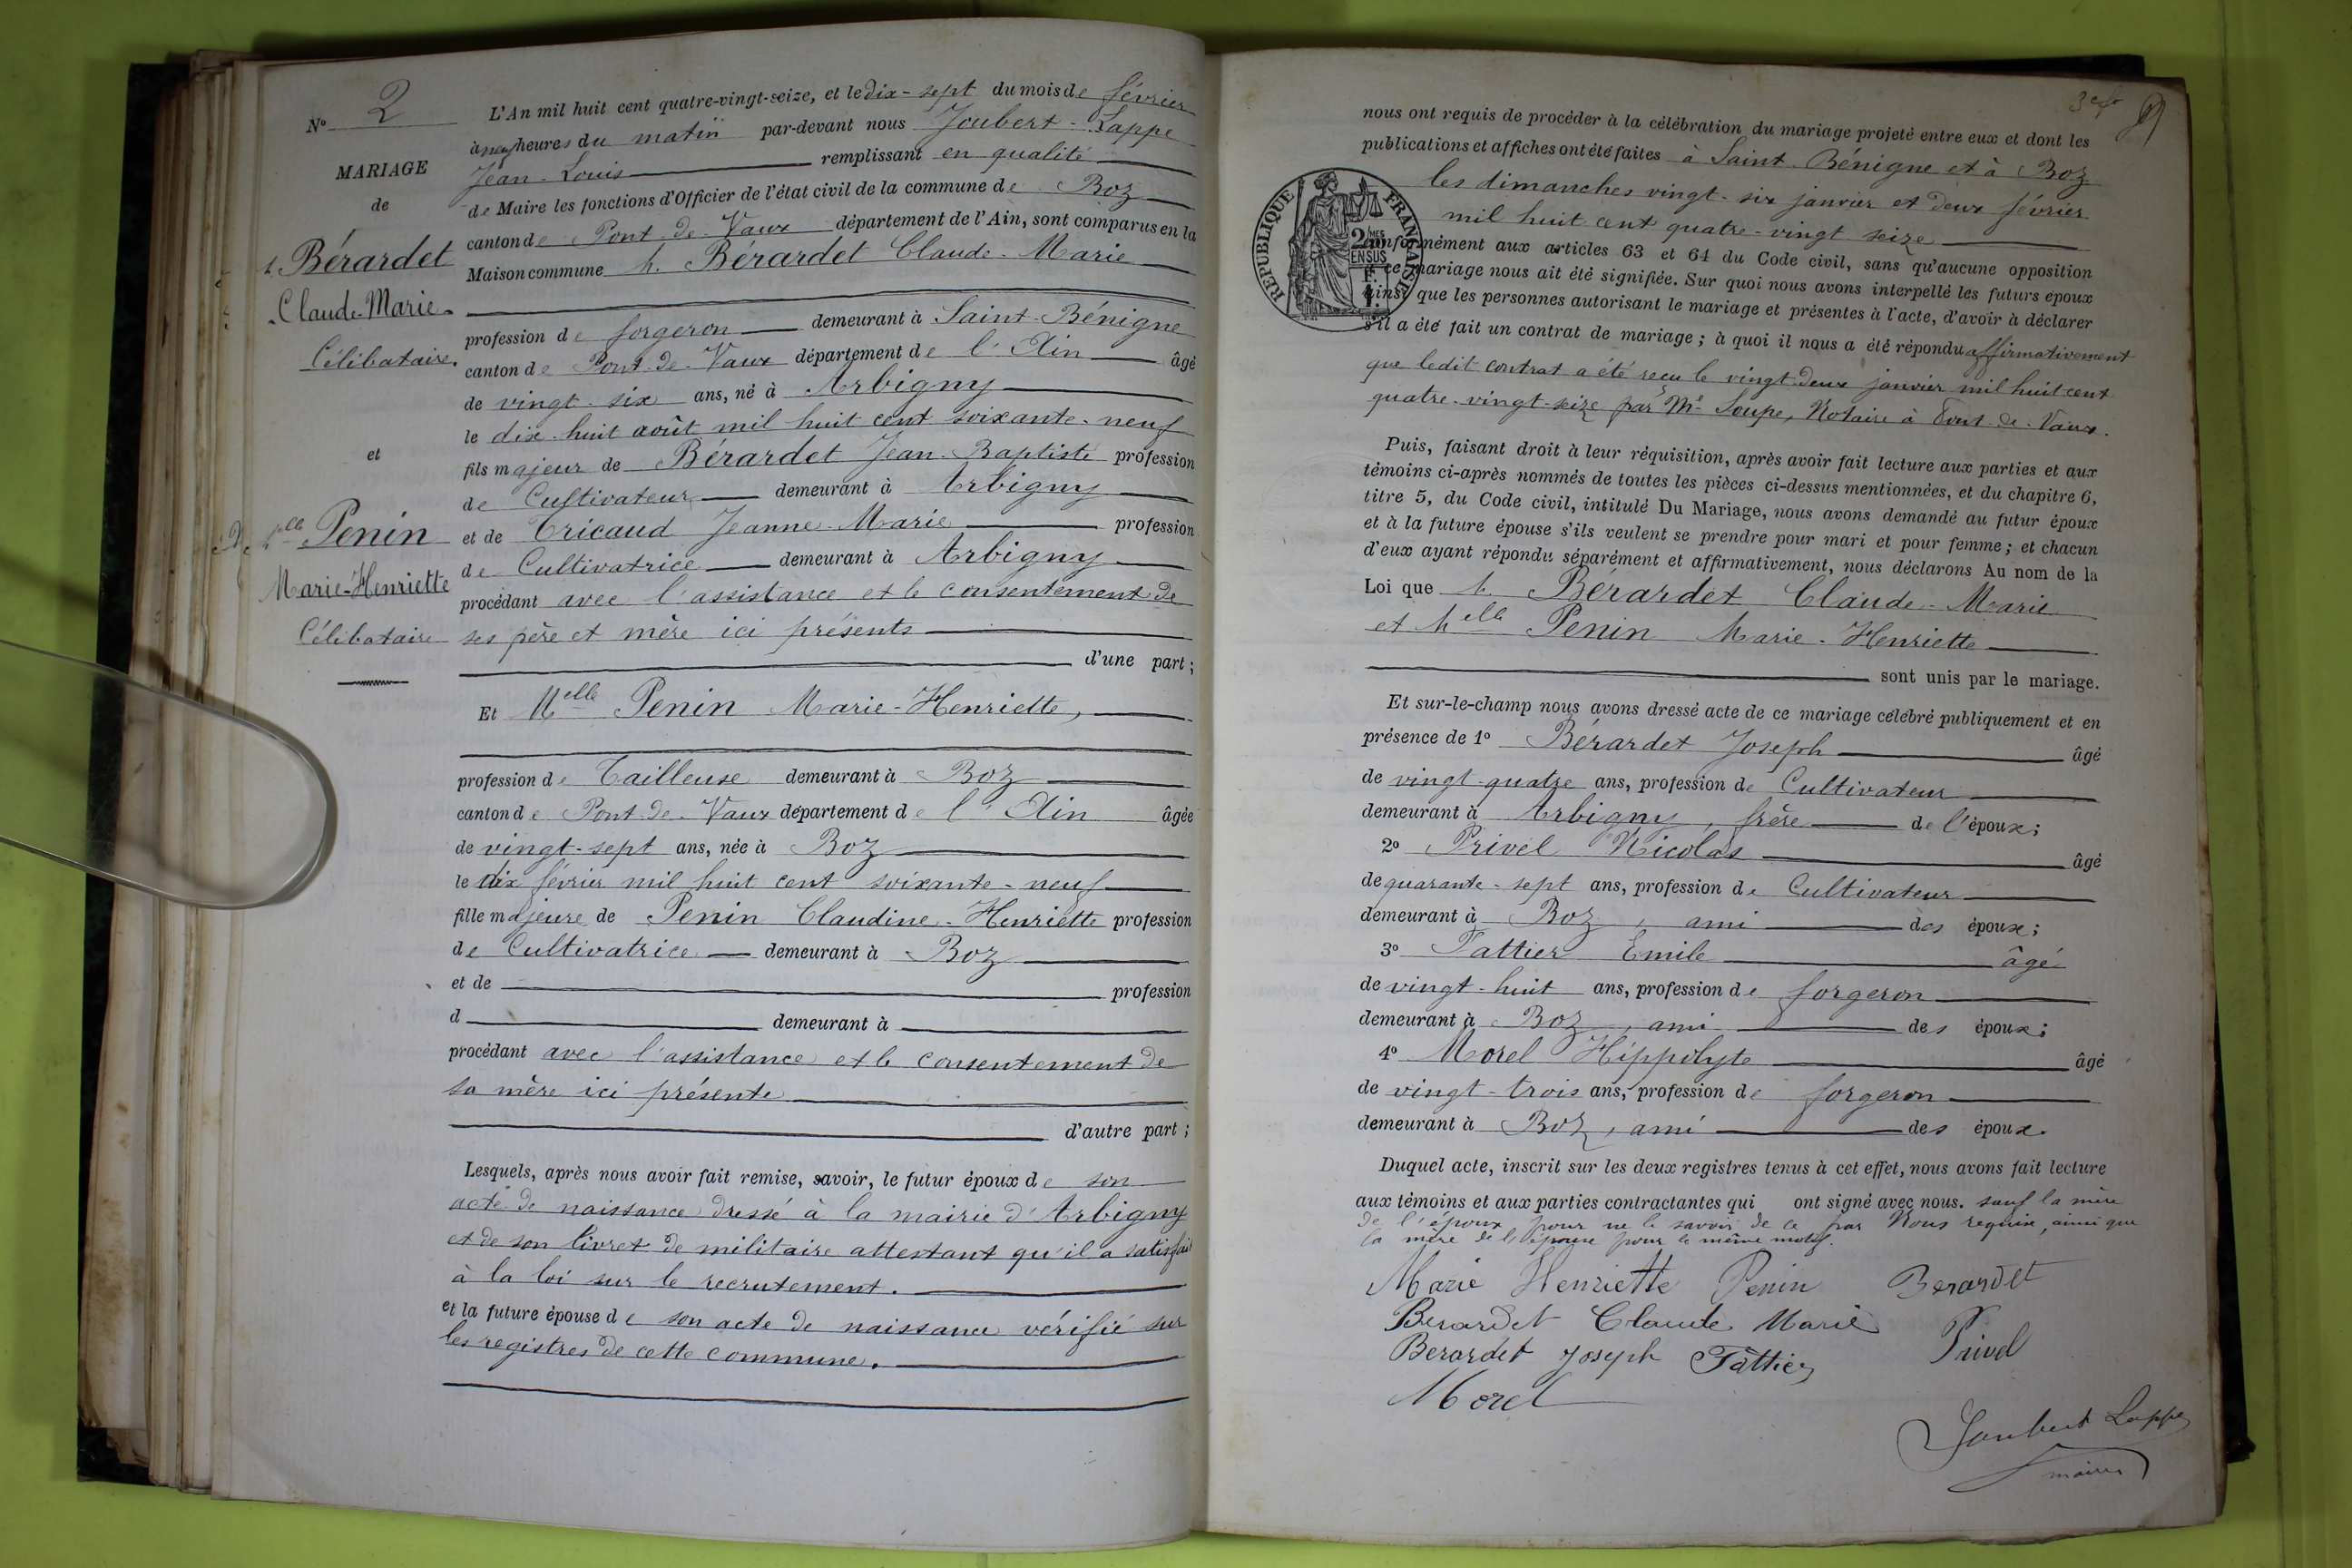 N° 2
MARIAGE
de
M. Bérardet
Claude-Marie.
Célibataire.
et
de Melle Penin
Marie-Henriette
Célibataire
L'An mil huit cent quatre-vingt-seize, et le dix-sept du mois de février
à neuf heures du matin par-devant nous Joubert-Lappe
Jean-Louis remplissant en qualité
de Maire les fonctions d'Officier de l'état civil de la commune de Boz
canton de Pont-de-Vaux département de l'Ain, sont comparus en la
Maison commune M. Bérardet Claude-Marie
profession de forgeron demeurant à Saint-Bénigne
canton de Pont-de-Vaux département de l'Ain âgé
de vingt-six ans, né à Arbigny
le dix-huit août mil huit cent soixante-neuf
fils majeur de Bérardet Jean-Baptiste profession
de Cultivateur demeurant à Arbigny
et de Tricaud Jeanne-Marie profession
de Cultivatrice demeurant à Arbigny
procédant avec l'assistance et le consentement de
ses père et mère ici présents
d'une part;
Et Melle Penin Marie-Henriette,
profession de Tailleuse demeurant à Boz
canton de Pont-de-Vaux département de l'Ain âgée
de vingt-sept ans, née à Boz
le dix février mil huit cent soixante-neuf
fille majeure de Penin Claudine-Henriette profession
de Cultivatrice demeurant à Boz
et de profession
d demeurant à
procédant avec l'assistance et le consentement de
sa mère ici présente
d'autre part;
Lesquels, après nous avoir fait remise, savoir, le futur époux de son
acte de naissance dressé à la mairie d'Arbigny
et de son livret de militaire attestant qu'il a satisfait
à la loi sur le recrutement.
et la future épouse de son acte de naissance vérifié sur
les registres de cette commune.
nous ont requis de procéder à la célébration du mariage projeté entre eux et dont les
publications et affiches ont été faites à Saint-Bénigne et à Boz
les dimanches vingt-six janvier et deux février
mil huit cent quatre-vingt seize
RÉPUBLIQUE FRANÇAISE
2/10MES EN SUS
1F
conformément aux articles 63 et 64 du Code civil, sans qu'aucune opposition
à ce mariage nous ait été signifiée. Sur quoi nous avons interpellé les futurs époux
ainsi que les personnes autorisant le mariage et présentes à l'acte, d'avoir à déclarer
s'il a été fait un contrat de mariage; à quoi il nous a été répondu affirmativement
que ledit contrat a été reçu le vingt-deux janvier mil huit cent
quatre-vingt-seize par Me Soupe, Notaire à Pont-de-Vaux.
Puis, faisant droit à leur réquisition, après avoir fait lecture aux parties et aux
témoins ci-après nommés de toutes les pièces ci-dessus mentionnées, et du chapitre 6,
titre 5, du Code civil, intitulé Du Mariage, nous avons demandé au futur époux
et à la future épouse s'ils veulent se prendre pour mari et pour femme; et chacun
d'eux ayant répondu séparément et affirmativement, nous déclarons Au nom de la
Loi que M. Bérardet Claude-Marie
et Melle Penin Marie-Henriette
sont unis par le mariage.
Et sur-le-champ nous avons dressé acte de ce mariage célébré publiquement et en
présence de 1° Bérardet Joseph âgé
de vingt-quatre ans, profession de Cultivateur
demeurant à Arbigny, frère de l'époux;
2° Privel Nicolas âgé
de quarante-sept ans, profession de Cultivateur
demeurant à Boz, ami des époux;
3° Tattier Emile âgé
de vingt-huit ans, profession de forgeron
demeurant à Boz, ami des époux;
4° Morel Hippolyte âgé
de vingt-trois ans, profession de forgeron
demeurant à Boz, ami des époux.
Duquel acte, inscrit sur les deux registres tenus à cet effet, nous avons fait lecture
aux témoins et aux parties contractantes qui ont signé avec nous. sauf la mère
de l'époux pour ne le savoir de ce par Nous requise, ainsi que
la mère de l'épouse pour le même motif.
Marie Henriette Penin Berardet
Berardet Claude Marie
Privel
Berardet Joseph Tattier
Morel
Joubert Lappe
maire